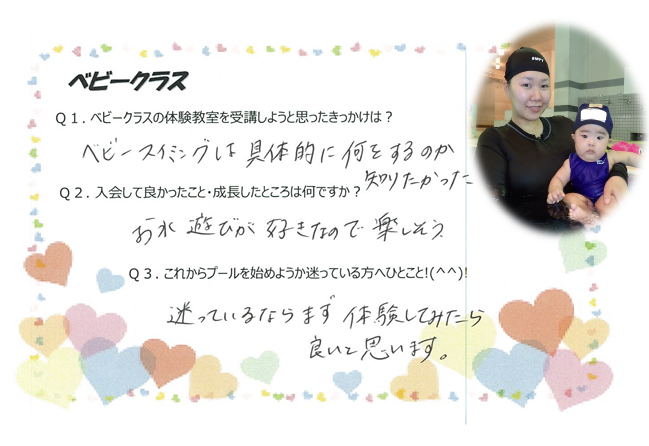 ベビークラス
Q1．ベビークラスの体験教室を受講しようと思ったきっかけは？
ベビースイミングは具体的に何をするのか
知りたかった
Q2．入会して良かったこと・成長したところは何ですか？
お水遊びが好きなので楽しそう
Q3．これからプールを始めようか迷っている方へひとこと!(^^)!
迷っているならまず体験してみたら
良いと思います。